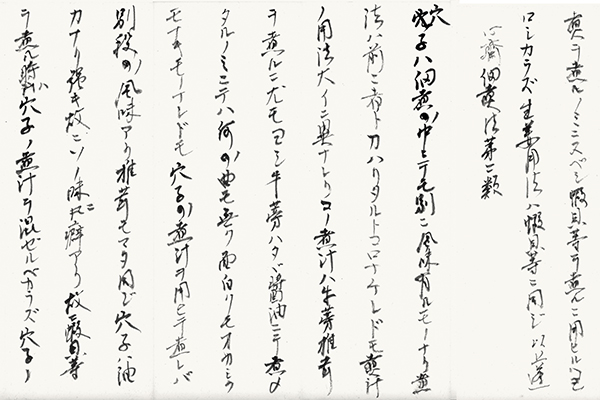 煮ヲ煮ルノミニスベシ蝦貝等ヲ煮ルニ用ヒルハヨ
ロシカラズ生姜用法ハ蝦貝等ニ同ジ以上述
佃煮法第二類
穴子ハ佃煮ノ中ニテモ別ニ風味有ルモノナリ煮
法ハ前ニ者トカハリタルトコロナケレドモ煮汁
ノ用法大イニ異ナレリコノ煮汁ハ牛蒡椎茸
ヲ煮ルニ尤モヨシ牛蒡ハタダ醤油ニテ煮〆
タルノミニテハ何の曲モ無ク面白クモオカシク
モナキモノナレドモ穴子の煮汁ヲ用ヒテ煮レバ
別段の風味アリ椎茸モマタ同ジ穴子ハ油
カナリ強キ故ニソノ味ニ癖アリ故ニ蝦貝等
ヲ煮ル時ハ穴子ノ煮汁ヲ混ゼルベカラズ穴子ノ